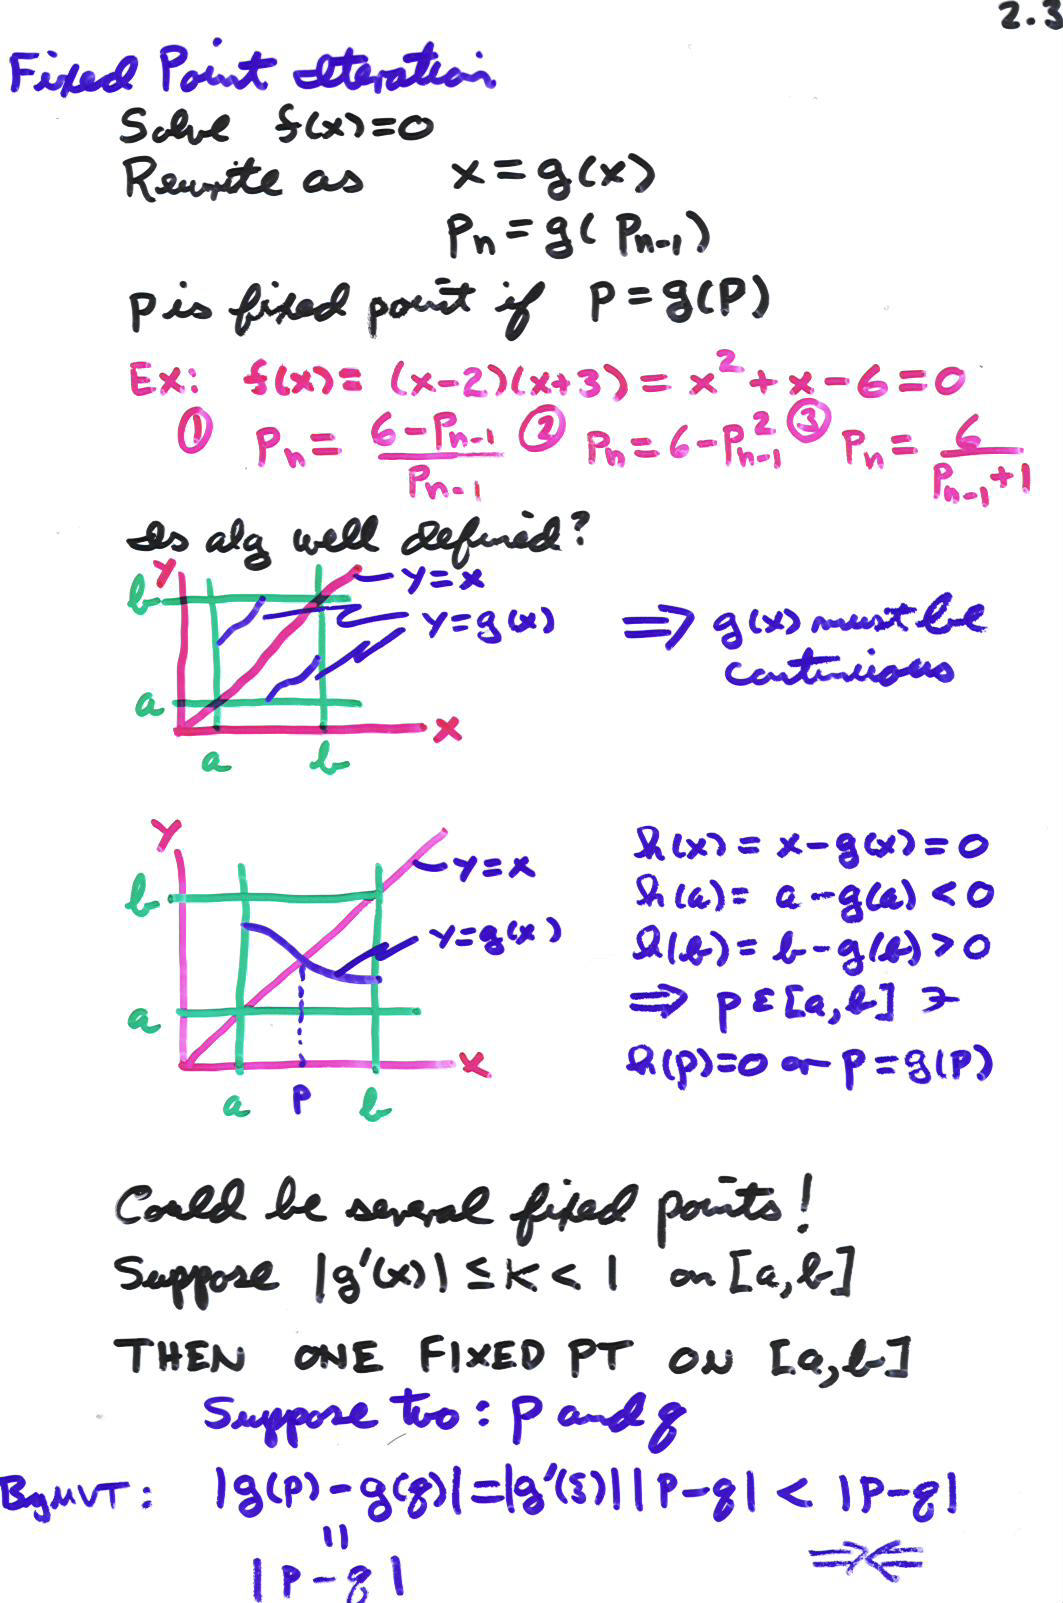 2.3
Fixed Point Iteration
Solve f(x)=0
Rewrite as x = g(x)
Pn = g( Pn-1 )
p is fixed point if P = g(P)
Ex: f(x) = (x-2)(x+3) = x² + x - 6 = 0
① Pn = (6 - Pn-1)/Pn-1 ② Pn = 6 - Pn-1² ③ Pn = 6/(Pn-1 + 1)
Is alg well defined?
y
b
y = x
y = g(x)
⇒ g(x) must be
continuous
a
x
a b
y
b
y = x
y = g(x)
a
x
a P b
h(x) = x - g(x) = 0
h(a) = a - g(a) < 0
h(b) = b - g(b) > 0
⇒ p ε [a, b] ∋
h(p) = 0 or p = g(p)
Could be several fixed points!
Suppose |g'(x)| ≤ K < 1 on [a, b]
THEN ONE FIXED PT ON [a, b]
Suppose two : p and q
By MVT : |g(p) - g(q)| = |g'(ξ)| |p-q| < |p-q|
||
|p-q| ⇒⇐